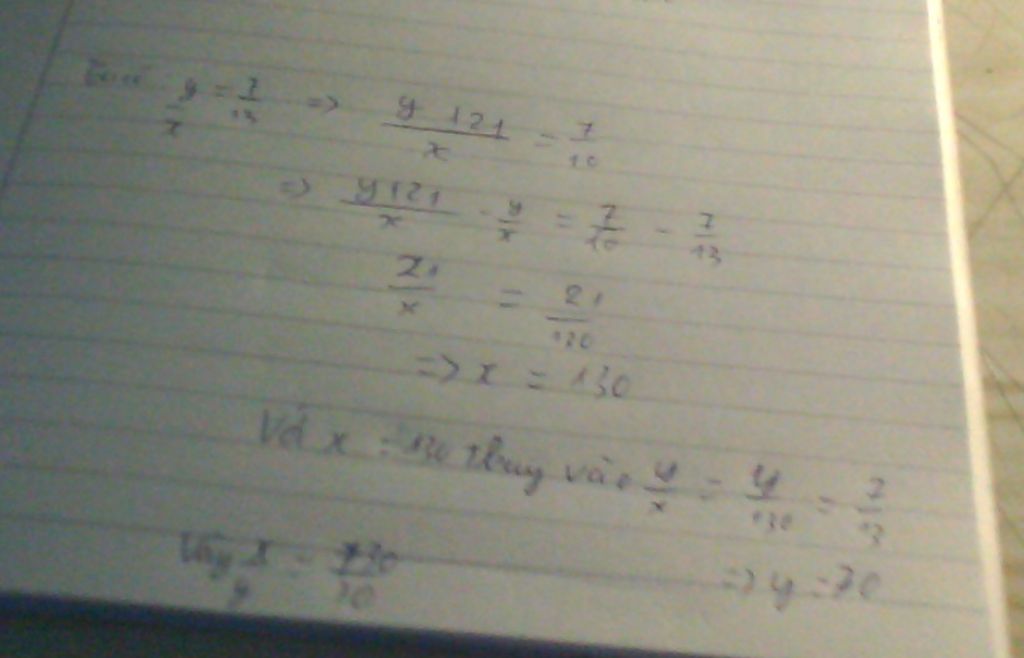 y/x = 7/13 => y 121/x = 7/10
=> y121/x - y/x = 7/10 - 7/13
21/x = 21/130
=> x = 130
Với x = 130 thay vào y/x = y/130 = 7/13
=> y = 70
Vậy x/y = 130/70